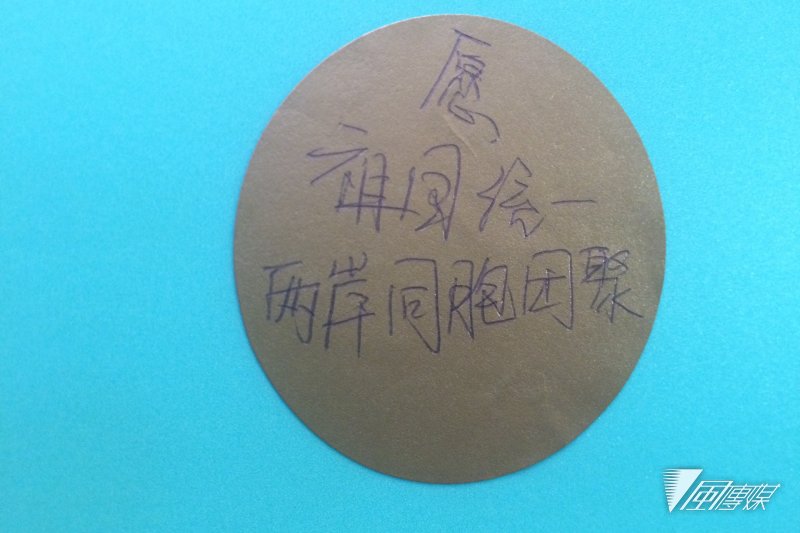 愿
祖国统一
两岸同胞团聚
風傳媒